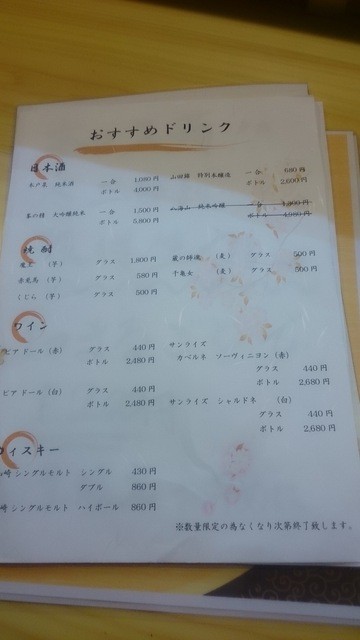 おすすめドリンク
日本酒
木戸泉 純米酒 一合 1,080円
ボトル 4,000円
山田錦 特別本醸造 一合 680円
ボトル 2,600円
大吟醸純米 一合 1,500円
ボトル 5,600円
八海山 純米吟醸 一合 1,300円
ボトル 4,980円
焼酎
魔王 (芋) グラス 1,800円
赤兎馬 (芋) グラス 580円
くじら (芋) グラス 500円
蔵の師魂 (麦) グラス 500円
千亀女 (麦) グラス 500円
ワイン
ピアドール (赤) グラス 440円
ボトル 2,480円
ピアドール (白) グラス 440円
ボトル 2,480円
サンライズ
カベルネ ソーヴィニヨン (赤)
グラス 440円
ボトル 2,680円
サンライズ シャルドネ (白)
グラス 440円
ボトル 2,680円
ウィスキー
崎 シングルモルト シングル 430円
ダブル 860円
崎 シングルモルト ハイボール 860円
※数量限定の為なくなり次第終了致します。